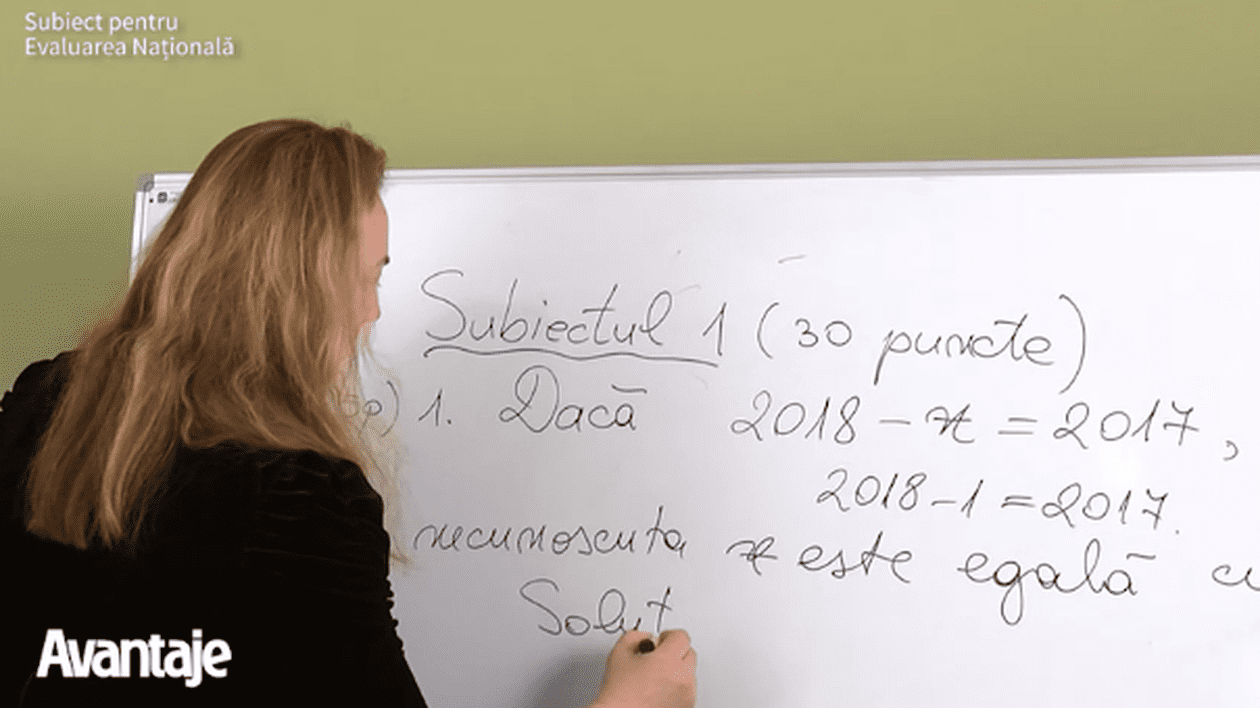 Subiect pentru
Evaluarea Națională
Subiectul 1 (30 puncte)
5p) 1. Dacă 2018 - x = 2017,
2018 - 1 = 2017.
necunoscuta x este egală cu
Soluț
Avantaje